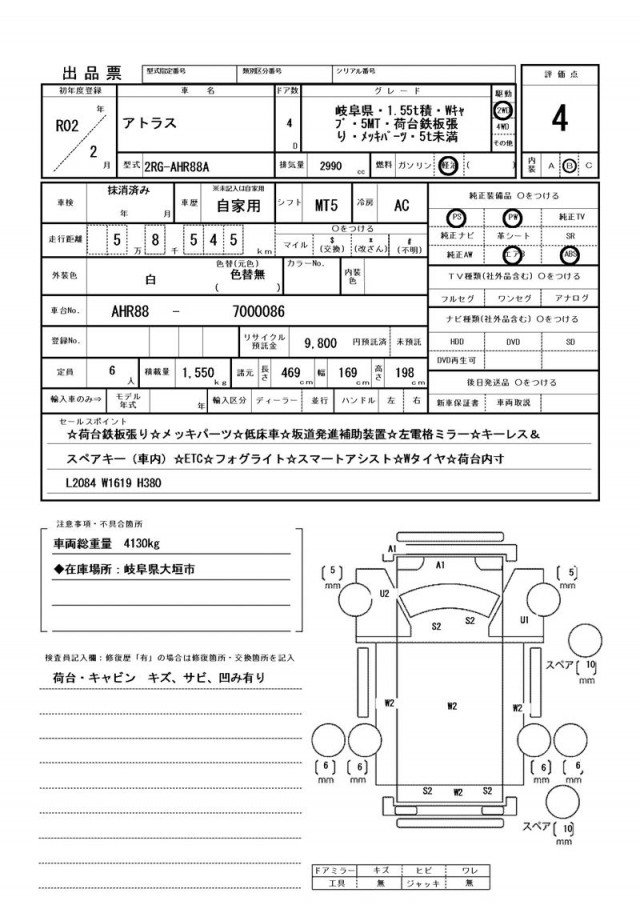 出品票 型式指定番号 類別区分番号 シリアル番号 評価点
初年度登録 車名 ドア数 グレード 駆動
R02 年 2 月 アトラス 4 D 岐阜県・1.55t積・Wキャ 2WD 4
ブ・5MT・荷台鉄板張 4WD
り・メッキパーツ・5t未満 その他
型式 2RG-AHR88A 排気量 2990 cc 燃料 ガソリン 軽油 ( ) 内装 A B C
車検 抹消済み 年 月 車歴 ※未記入は自家用 自家用 シフト MT5 冷房 AC 純正装備品 〇をつける
PS PW 純正TV
走行距離 5 万 8 千 5 4 5 km 〇をつける
マイル $ (交換) * (改ざん) # (不明) 純正ナビ 革シート SR
純正AW エアB ABS
外装色 白 色替(元色) 色替無 ( ) カラーNo. 内装色 TV種類(社外品含む) 〇をつける
フルセグ ワンセグ アナログ
車台No. AHR88 - 7000086 ナビ種類(社外品含む) 〇をつける
登録No. リサイクル預託金 9,800 円預託済 未預託 HDD DVD SD
DVD再生可
定員 6 人 積載量 1,550 kg 諸元 長さ 469 cm 幅 169 cm 高さ 198 cm 後日発送品 〇をつける
輸入車のみ⇒ モデル年式 年 輸入区分 ディーラー 並行 ハンドル 左 右 新車保証書 車両取説
セールスポイント
☆荷台鉄板張り☆メッキパーツ☆低床車☆坂道発進補助装置☆左電格ミラー☆キーレス&
スペアキー（車内）☆ETC☆フォグライト☆スマートアシスト☆Wタイヤ☆荷台内寸
L2084 W1619 H380
注意事項・不具合箇所
車両総重量 4130kg
◆在庫場所：岐阜県大垣市
検査員記入欄：修復歴「有」の場合は修復箇所・交換箇所を記入
荷台・キャビン キズ、サビ、凹み有り
A1
A1
[5] mm [5] mm
U2 U1
S2 S2
スペア [10] mm
W2 W2 W2
[6] mm [6] mm [6] mm [6] mm
S2 W2 S2
スペア [10] mm
ドアミラー キズ ヒビ ワレ
工具 無 ジャッキ 無